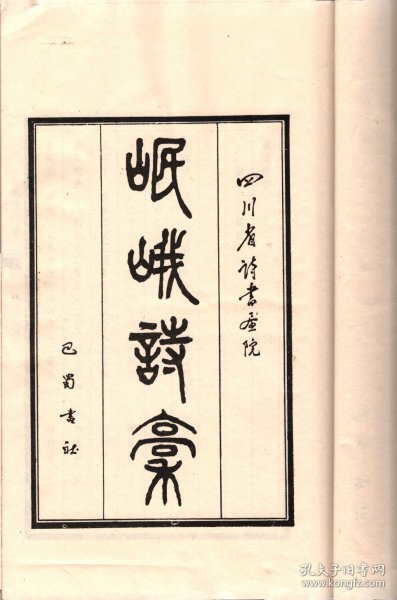 四川省诗书画院
岷峨詩稾
巴蜀書社
孔夫子旧书网
www.kongfz.com